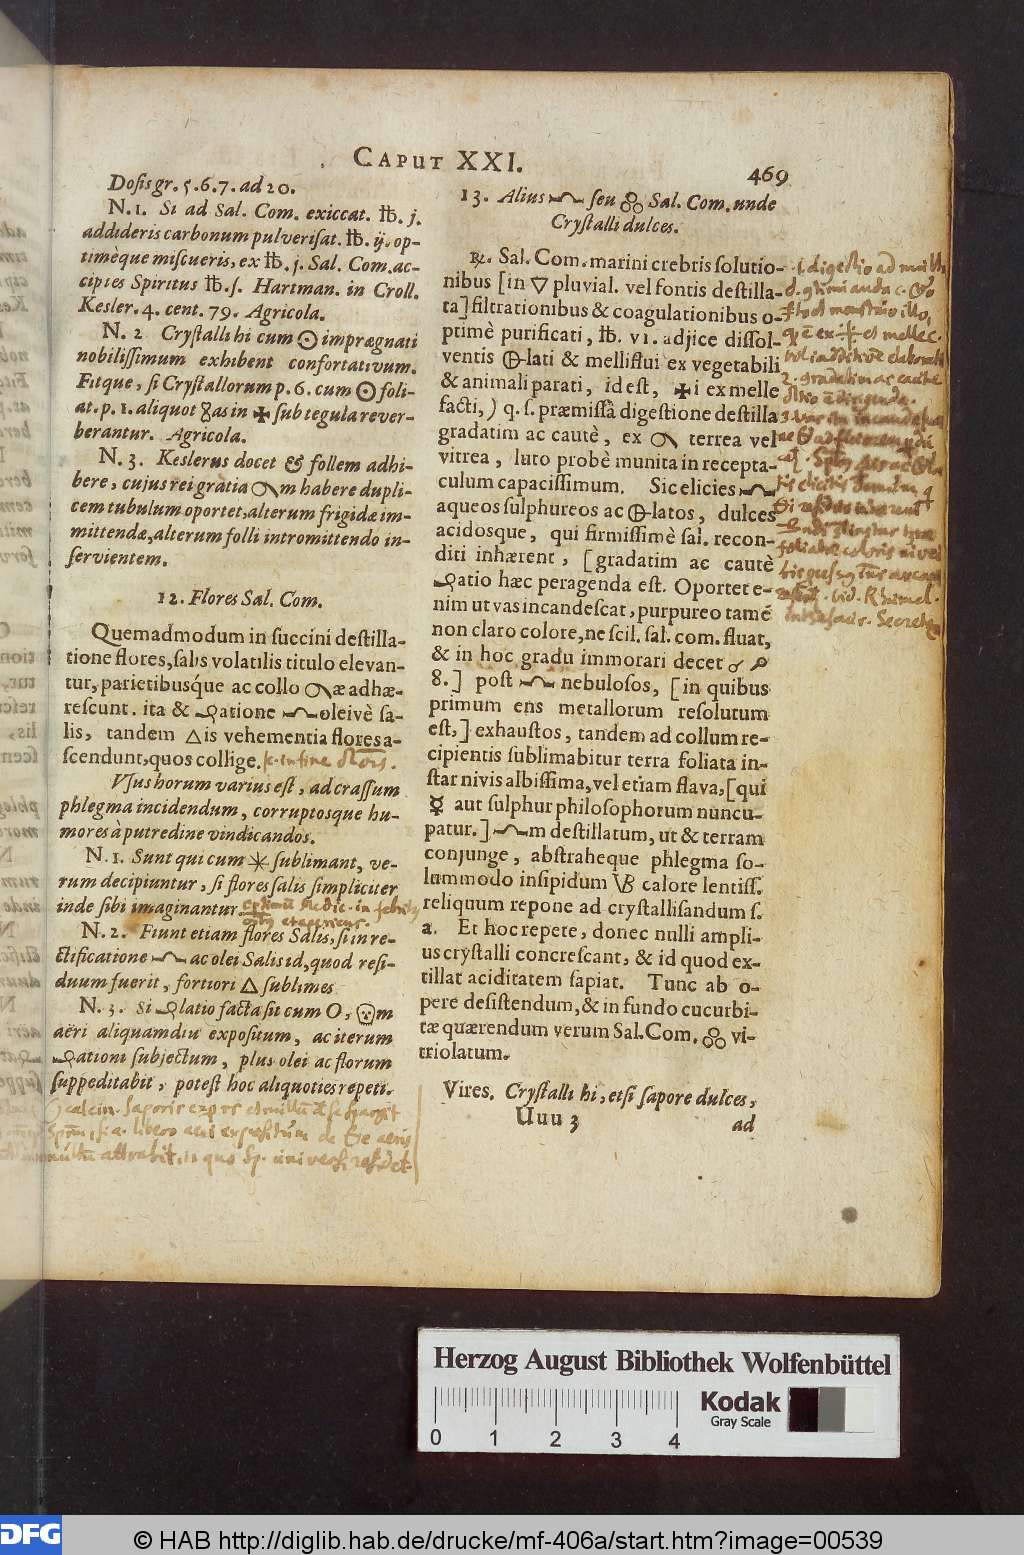 CAPUT XXI.
469
Dosis gr. 5. 6. 7. ad 20.
N. 1. Si ad Sal. Com. exiccat. ℔. j.
addideris carbonum pulverisat. ℔. ij. op-
timèque miscueris, ex ℔. j. Sal. Com. ac-
cipies Spiritus ℔. s. Hartman. in Croll.
Kesler. 4. cent. 79. Agricola.
N. 2 Crystalli hi cum ☉ imprægnati
nobilissimum exhibent confortativum.
Fitque, si Crystallorum p. 6. cum ☉ foli-
at. p. 1. aliquot as in ✠ sub tegula rever-
berantur. Agricola.
N. 3. Keslerus docet & follem adhi-
bere, cujus rei gratia m habere dupli-
cem tubulum oportet, alterum frigidæ im-
mittendæ, alterum folli intromittendo in-
servientem.
12. Flores Sal. Com.
Quemadmodum in succini destilla-
tione flores, salis volatilis titulo elevan-
tur, parietibusq́ue ac collo æ adhæ-
rescunt. ita & atione oleivè sa-
lis, tandem △is vehementia flores a-
scendunt, quos collige.
Usus horum varius est, ad crassum
phlegma incidendum, corruptosque hu-
mores à putredine vindicandos.
N. 1. Sunt qui cum ✳ sublimant, ve-
rum decipiuntur, si flores salis simpliciter
inde sibi imaginantur.
N. 2. Fiunt etiam flores Salis, si in re-
ctificatione ac olei Salis id, quod resi-
duum fuerit, fortiori △ sublimes
N. 3. Si latio facta sit cum O, m
aëri aliquamdiu expositum, ac iterum
ationi subjectum, plus olei ac florum
suppeditabit, potest hoc aliquoties repeti.
13. Alius seu Sal. Com. unde
Crystalli dulces.
℞. Sal. Com. marini crebris solutio-
nibus [in ▽ pluvial. vel fontis destilla-
ta] filtrationibus & coagulationibus o-
ptimè purificati, ℔. vi. adjice dissol-
ventis lati & melliflui ex vegetabili
& animali parati, id est, ✠i ex melle
facti,) q. s. præmissâ digestione destilla
gradatim ac cautè, ex terrea vel
vitrea, luto probè munita in recepta-
culum capacissimum. Sic elicies
aqueos sulphureos ac latos, dulces
acidosque, qui firmissimè sal. recon-
diti inhærent, [gradatim ac cautè
atio hæc peragenda est. Oportet e-
nim ut vas incandescat, purpureo tamẽ
non claro colore, ne scil. sal. com. fluat,
& in hoc gradu immorari decet
8.] post nebulosos, [in quibus
primum ens metallorum resolutum
est,] exhaustos, tandem ad collum re-
cipientis sublimabitur terra foliata in-
star nivis albissima, vel etiam flava, [qui
☿ aut sulphur philosophorum nuncu-
patur.] m destillatum, ut & terram
conjunge, abstraheque phlegma so-
lummodo insipidum calore lentiss.
reliquum repone ad crystallisandum s.
a. Et hoc repete, donec nulli ampli-
us crystalli concrescant, & id quod ex-
tillat aciditatem sapiat. Tunc ab o-
pere desistendum, & in fundo cucurbi-
tæ quærendum verum Sal. Com. vi-
triolatum.
Vires. Crystalli hi, etsi sapore dulces,
Uuu 3
ad
Herzog August Bibliothek Wolfenbüttel
Kodak
Gray Scale
0 1 2 3 4
DFG
© HAB http://diglib.hab.de/drucke/mf-406a/start.htm?image=00539